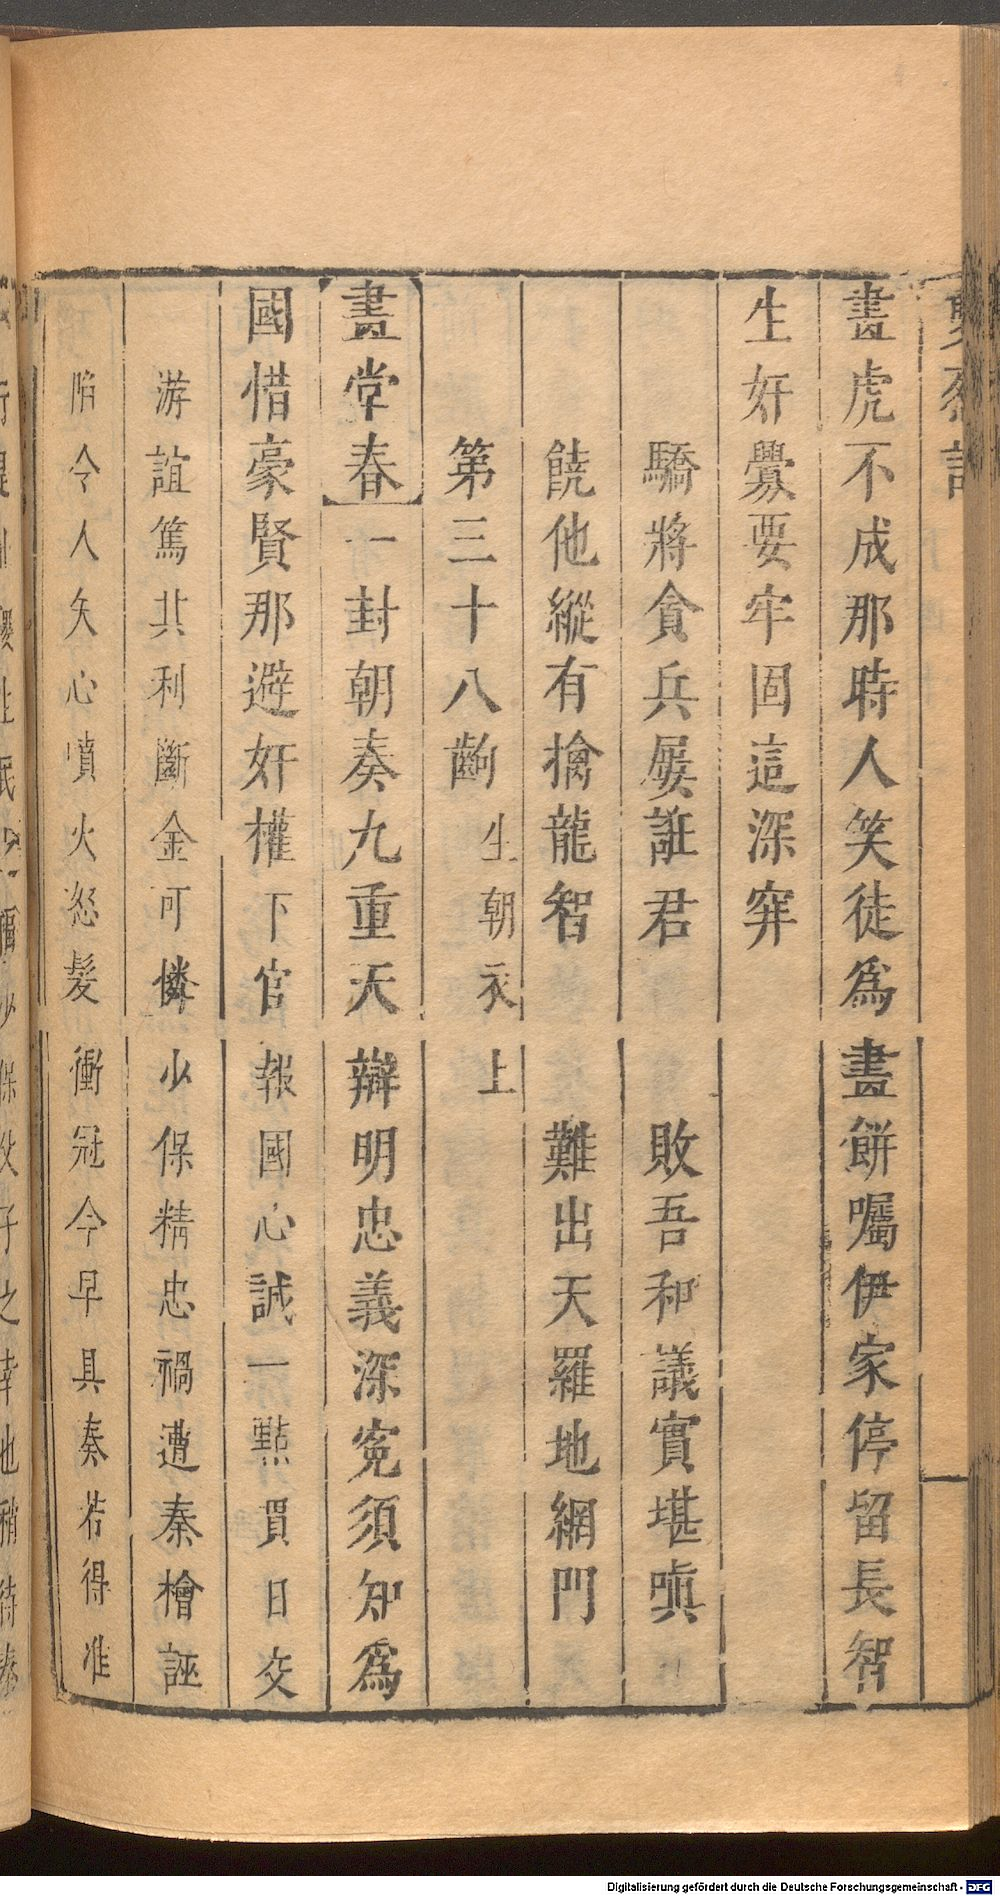 畫虎不成那時人笑徒爲畫餅囑伊家停留長智
生奸釁要牢固這深穽
驕將貪兵屢誑君敗吾和議實堪嗔
饒他縱有擒龍智難出天羅地網門
第三十八齣生朝衣上
畫堂春一封朝奏九重天辯明忠義深寃須知爲
國惜豪賢那避奸權下官報國心誠一點貫日交
游誼篤共利斷金可憐少保精忠禍遭秦檜誣
陷令人矢心噴火怒髮衝冠今早具奏若得准
Digitalisierung gefördert durch die Deutsche Forschungsgemeinschaft - DFG